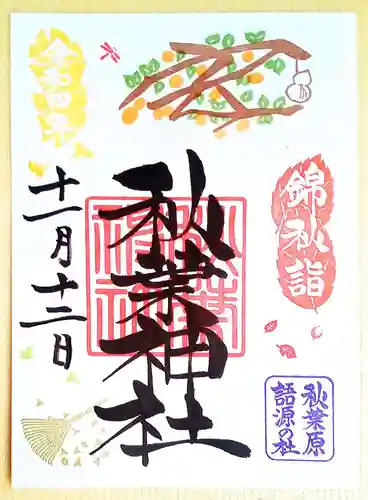 錦秋詣
秋葉原
語源の社
秋葉神社
秋葉
神社
十一月十二日